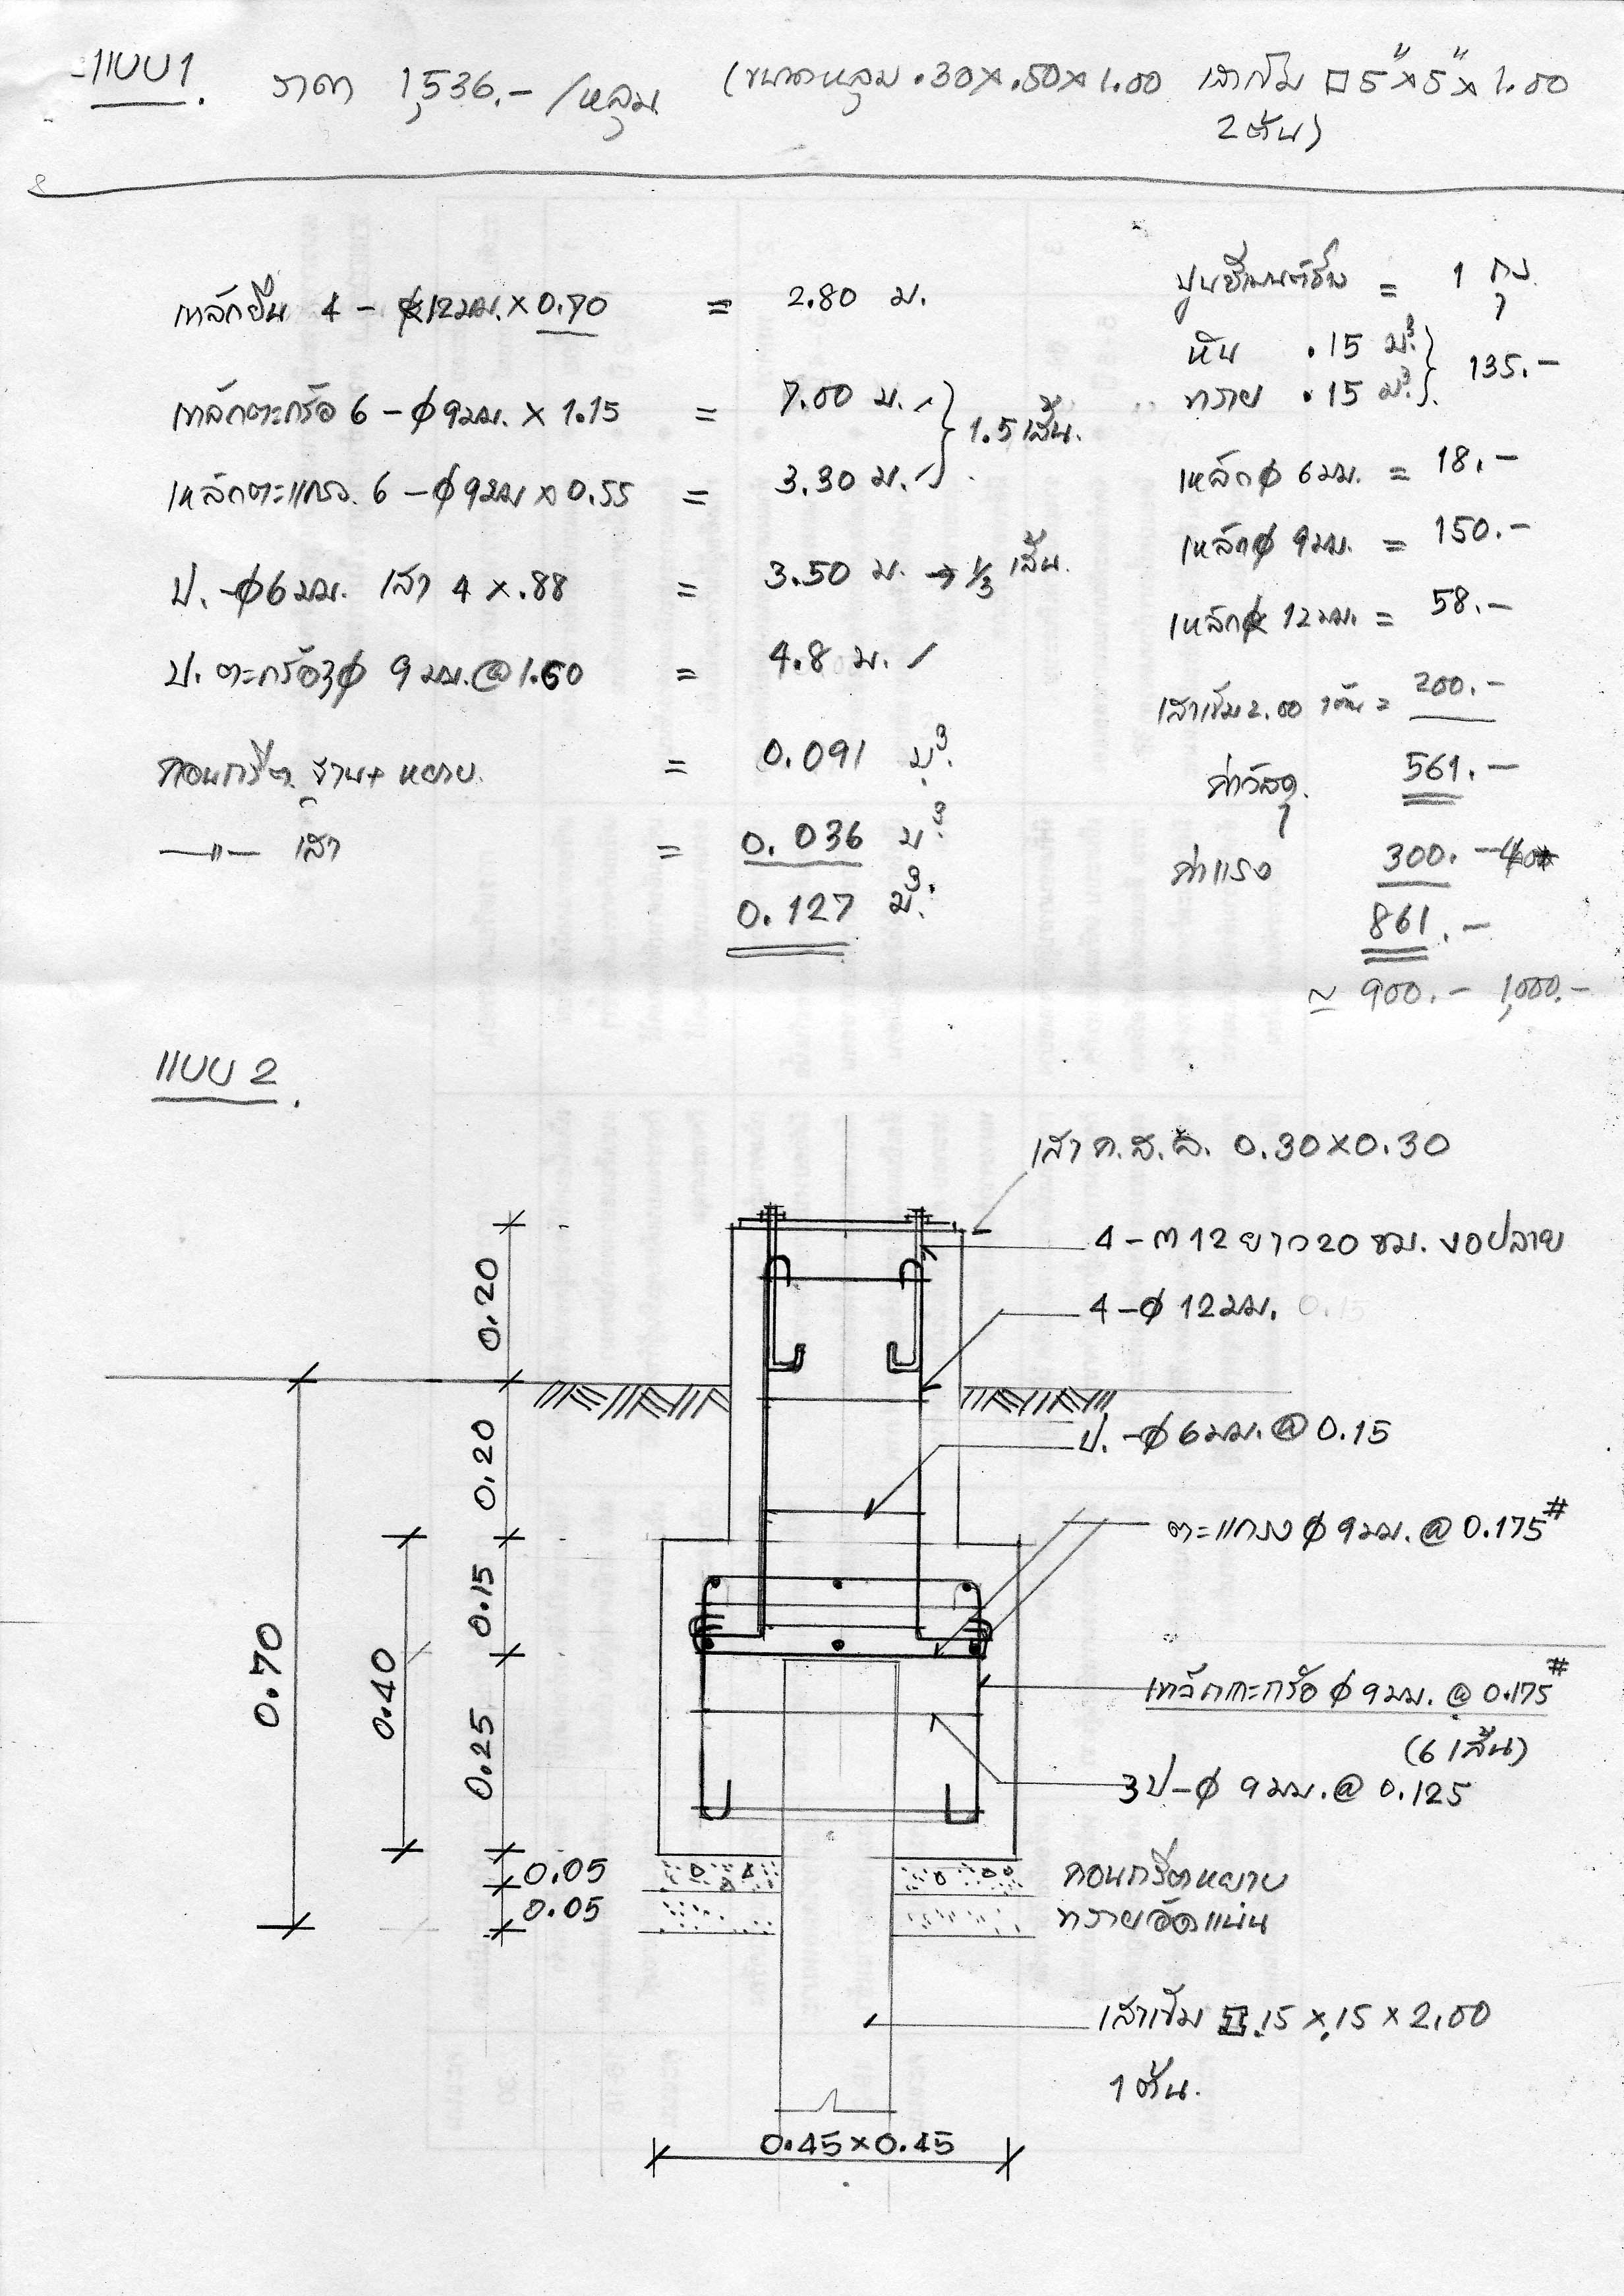 แบบ 1. ราคา 1,536.- /หลุม (ขนาดหลุม .30x.50x1.00 เสาเข็ม □ 5"x5"x1.00
2 ต้น)
เหล็กยืน 4 - ф12มม. x 0.70 = 2.80 ม.
เหล็กตะกร้อ 6 - ф9มม. x 1.15 = 7.00 ม. } 1.5 เส้น.
เหล็กตะแกรง. 6 - ф9มม x 0.55 = 3.30 ม.
ป. -ф6มม. เสา 4 x .88 = 3.50 ม. → 1/3 เส้น.
ป. ตะกร้อ3ф 9 มม.@1.60 = 4.8 ม.
คอนกรีต ฐาน+ หยาบ. = 0.091 ม³.
—"— เสา = 0.036 ม³.
0.127 ม³.
ปูนซีเมนต์ = 1 ถุง
หิน .15 ม³. } 135.-
ทราย .15 ม³.
เหล็กф 6มม. = 18.-
เหล็กф 9มม. = 150.-
เหล็กф 12มม. = 58.-
เสาเข็ม 2.00 1ต้น = 200.-
ค่าวัสดุ. 561.-
ค่าแรง 300.-
861.-
≈ 900.- 1,000.-
แบบ 2.
เสา ค.ส.ล. 0.30x0.30
4 - ฅ 12 ยาว 20 ซม. งอปลาย
4 - ф 12มม. 0.15
ป. -ф6มม.@0.15
ตะแกรง ф 9มม.@0.175#
เหล็กตะกร้อ ф 9มม.@0.175#
(6 เส้น)
3ป-ф 9มม.@0.125
คอนกรีตหยาบ
ทรายอัดแน่น
เสาเข็ม □.15 x.15 x 2.00
1 ต้น.
0.20
0.20
0.15
0.25
0.05
0.05
0.40
0.70
0.45x0.45